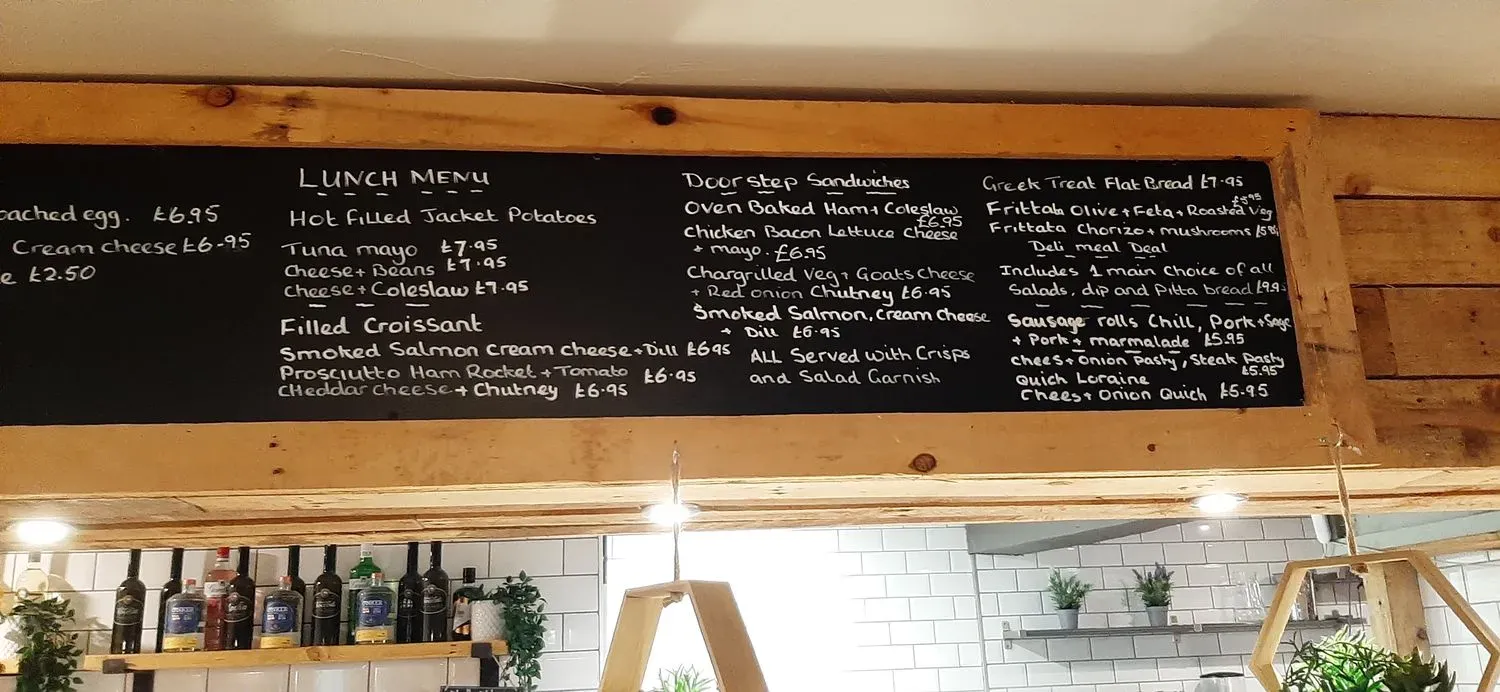 oached egg. £6.95
Cream cheese £6-95
e £2.50
LUNCH MENU
Hot filled Jacket Potatoes
Tuna mayo £7.95
Cheese + Beans £7.95
Cheese + Coleslaw £7.95
Filled Croissant
Smoked Salmon Cream cheese + Dill £6.95
Prosciutto Ham Rocket + Tomato £6.95
CHeddar Cheese + Chutney £6.95
Door step Sandwiches
Oven Baked Ham + Coleslaw
£6.95
Chicken Bacon Lettuce Cheese
+ mayo. £6.95
Chargrilled Veg + Goats Cheese
+ Red onion Chutney £6.95
Smoked Salmon, cream cheese
+ Dill £6.95
ALL Served with Crisps
and Salad Garnish
Greek Treat Flat Bread £7.95
£5.95
Frittata Olive + Feta + Roasted Veg
Frittata Chorizo + mushrooms
Deli meal Deal
Includes 1 main Choice of all
Salads, dip and Pitta bread £9.95
Sausage rolls Chill, Pork + Sage
+ Pork + marmalade £5.95
Chees + Onion Pasty, Steak Pasty
£5.95
Quich Loraine
Chees + Onion Quich £5.95